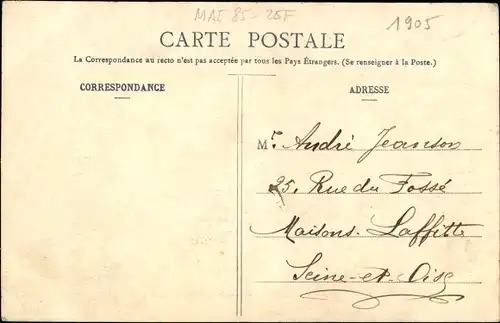 MAI 85 - 25F
1905
CARTE POSTALE
La Correspondance au recto n'est pas acceptée par tous les Pays Étrangers. (Se renseigner à la Poste.)
CORRESPONDANCE
ADRESSE
Mr. André Jeanson
25, Rue du Fossé
Maisons-Laffitte
Seine-et-Oise